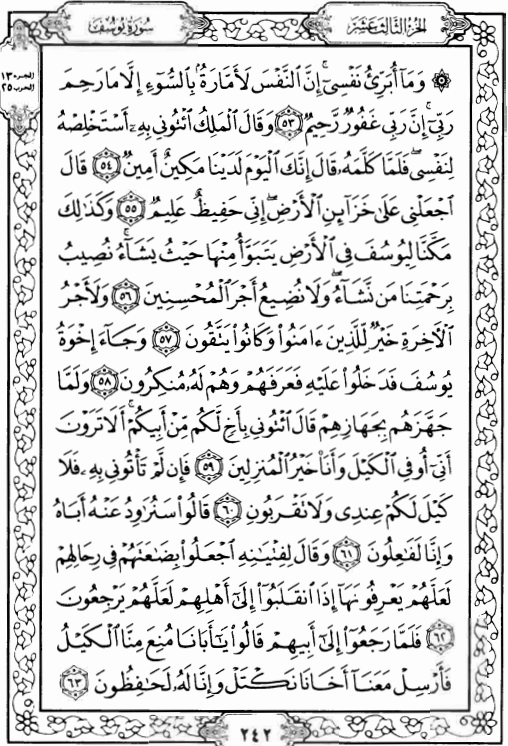 الجزء الثالث عشر
سورة يوسف
الجزء ١٣
الحزب ٢٥
۞ وَمَآ أُبَرِّئُ نَفْسِىٓۚ إِنَّ ٱلنَّفْسَ لَأَمَّارَةٌۢ بِٱلسُّوٓءِ إِلَّا مَا رَحِمَ
رَبِّىٓۚ إِنَّ رَبِّى غَفُورٌ رَّحِيمٌ ٥٣ وَقَالَ ٱلْمَلِكُ ٱئْتُونِى بِهِۦٓ أَسْتَخْلِصْهُ
لِنَفْسِىۖ فَلَمَّا كَلَّمَهُۥ قَالَ إِنَّكَ ٱلْيَوْمَ لَدَيْنَا مَكِينٌ أَمِينٌ ٥٤ قَالَ
ٱجْعَلْنِى عَلَىٰ خَزَآئِنِ ٱلْأَرْضِۖ إِنِّى حَفِيظٌ عَلِيمٌ ٥٥ وَكَذَٰلِكَ
مَكَّنَّا لِيُوسُفَ فِى ٱلْأَرْضِ يَتَبَوَّأُ مِنْهَا حَيْثُ يَشَآءُۚ نُصِيبُ
بِرَحْمَتِنَا مَن نَّشَآءُۖ وَلَا نُضِيعُ أَجْرَ ٱلْمُحْسِنِينَ ٥٦ وَلَأَجْرُ
ٱلْأَخِرَةِ خَيْرٌ لِّلَّذِينَ ءَامَنُوا۟ وَكَانُوا۟ يَتَّقُونَ ٥٧ وَجَآءَ إِخْوَةُ
يُوسُفَ فَدَخَلُوا۟ عَلَيْهِ فَعَرَفَهُمْ وَهُمْ لَهُۥ مُنكِرُونَ ٥٨ وَلَمَّا
جَهَّزَهُم بِجَهَازِهِمْ قَالَ ٱئْتُونِى بِأَخٍ لَّكُم مِّنْ أَبِيكُمْۚ أَلَا تَرَوْنَ
أَنِّىٓ أُوفِى ٱلْكَيْلَ وَأَنَا۠ خَيْرُ ٱلْمُنزِلِينَ ٥٩ فَإِن لَّمْ تَأْتُونِى بِهِۦ فَلَا
كَيْلَ لَكُمْ عِندِى وَلَا تَقْرَبُونِ ٦٠ قَالُوا۟ سَنُرَٰوِدُ عَنْهُ أَبَاهُ
وَإِنَّا لَفَٰعِلُونَ ٦١ وَقَالَ لِفِتْيَٰنِهِ ٱجْعَلُوا۟ بِضَٰعَتَهُمْ فِى رِحَالِهِمْ
لَعَلَّهُمْ يَعْرِفُونَهَآ إِذَا ٱنقَلَبُوٓا۟ إِلَىٰٓ أَهْلِهِمْ لَعَلَّهُمْ يَرْجِعُونَ
٦٢ فَلَمَّا رَجَعُوٓا۟ إِلَىٰٓ أَبِيهِمْ قَالُوا۟ يَٰٓأَبَانَا مُنِعَ مِنَّا ٱلْكَيْلُ
فَأَرْسِلْ مَعَنَآ أَخَانَا نَكْتَلْ وَإِنَّا لَهُۥ لَحَٰفِظُونَ ٦٣
٢٤٢